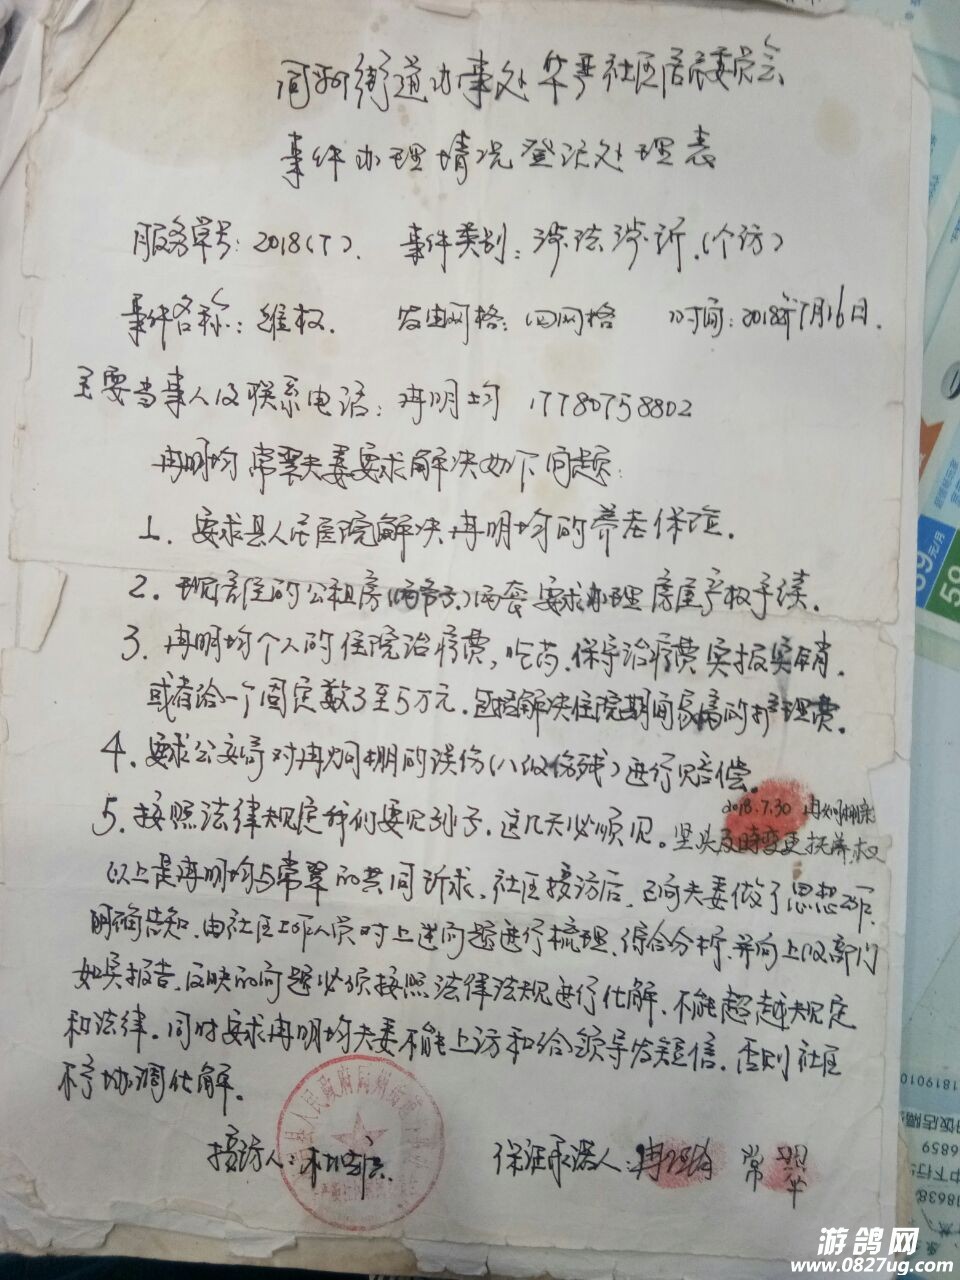 同州街道办事处华严社区居民委员会
事件办理情况登记处理表
服务单号:2018(7). 事件类别:涉法涉诉.(个访)
事件名称:维权. 发由网格:四网格 时间:2018年7月16日.
主要当事人及联系电话:冉明均 17780758802
冉明均 常翠夫妻要求解决如下问题:
1. 要求县人民医院解决冉明均的养老保险.
2. 现居住的公租房(两弟子)两套要求办理房屋产权手续.
3. 冉明均个人的住院治疗费,吃药.保守治疗费实报实销.
或者给一个固定数3至5万元.包括解决住院期间家属的护理费.
4. 要求公安局对冉炯棚的误伤(八级伤残)进行赔偿.
2018.7.30
5. 按照法律规定我们要见孙子.这几天必须见。坚决及時变更抚养权
以上是冉明均与常翠的共同诉求.社区接访后,已向夫妻做了思想工作.
明确告知.由社区工作人员对上述问题进行梳理.综合分析.并向上级部门
如实报告.反映的问题必须按照法律法规进行化解.不能超越规定
和法律.同时要求冉明均夫妻不能上访和给领导发短信.否则社区
不予协调化解.
接访人: 保证承诺人:冉明均 常翠
游鸽网
www.0827ug.com